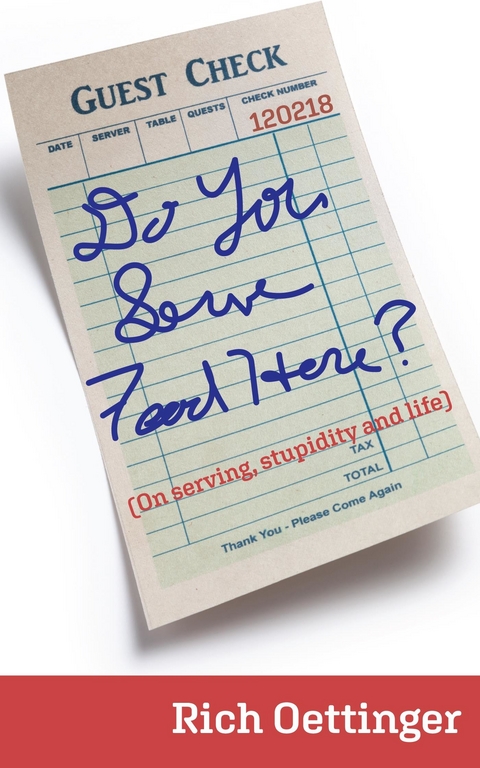 GUEST CHECK
DATE SERVER TABLE QUESTS CHECK NUMBER
120218
Do You
Serve
Food Here?
(On serving, stupidity and life)
TAX
TOTAL
Thank You - Please Come Again
Rich Oettinger